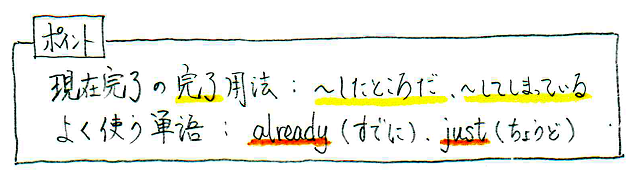 ポイント
現在完了の完了用法：～したところだ、～してしまっている
よく使う単語：already（すでに）、just（ちょうど）